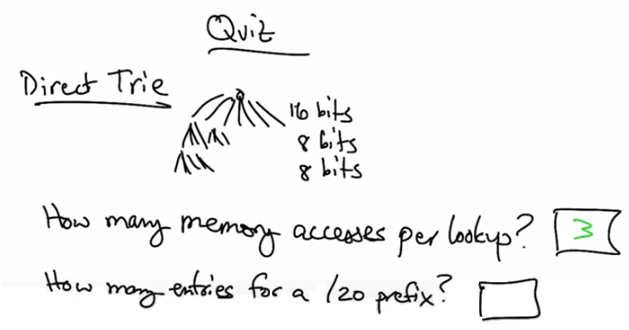 Quiz
Direct Trie
16 bits
8 bits
8 bits
How many memory accesses per lookup? 3
How many entries for a /20 prefix?